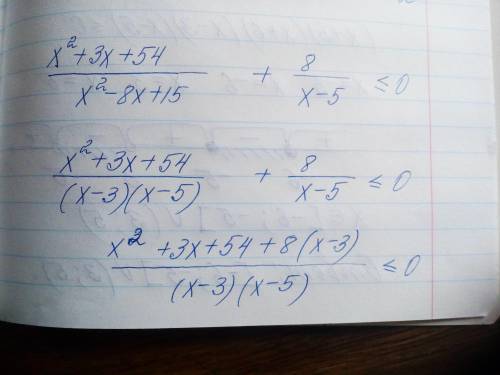 x²+3x+54 / x²-8x+15 + 8 / x-5 ≤ 0
x²+3x+54 / (x-3)(x-5) + 8 / x-5 ≤ 0
x² +3x+54+8(x-3) / (x-3)(x-5) ≤ 0